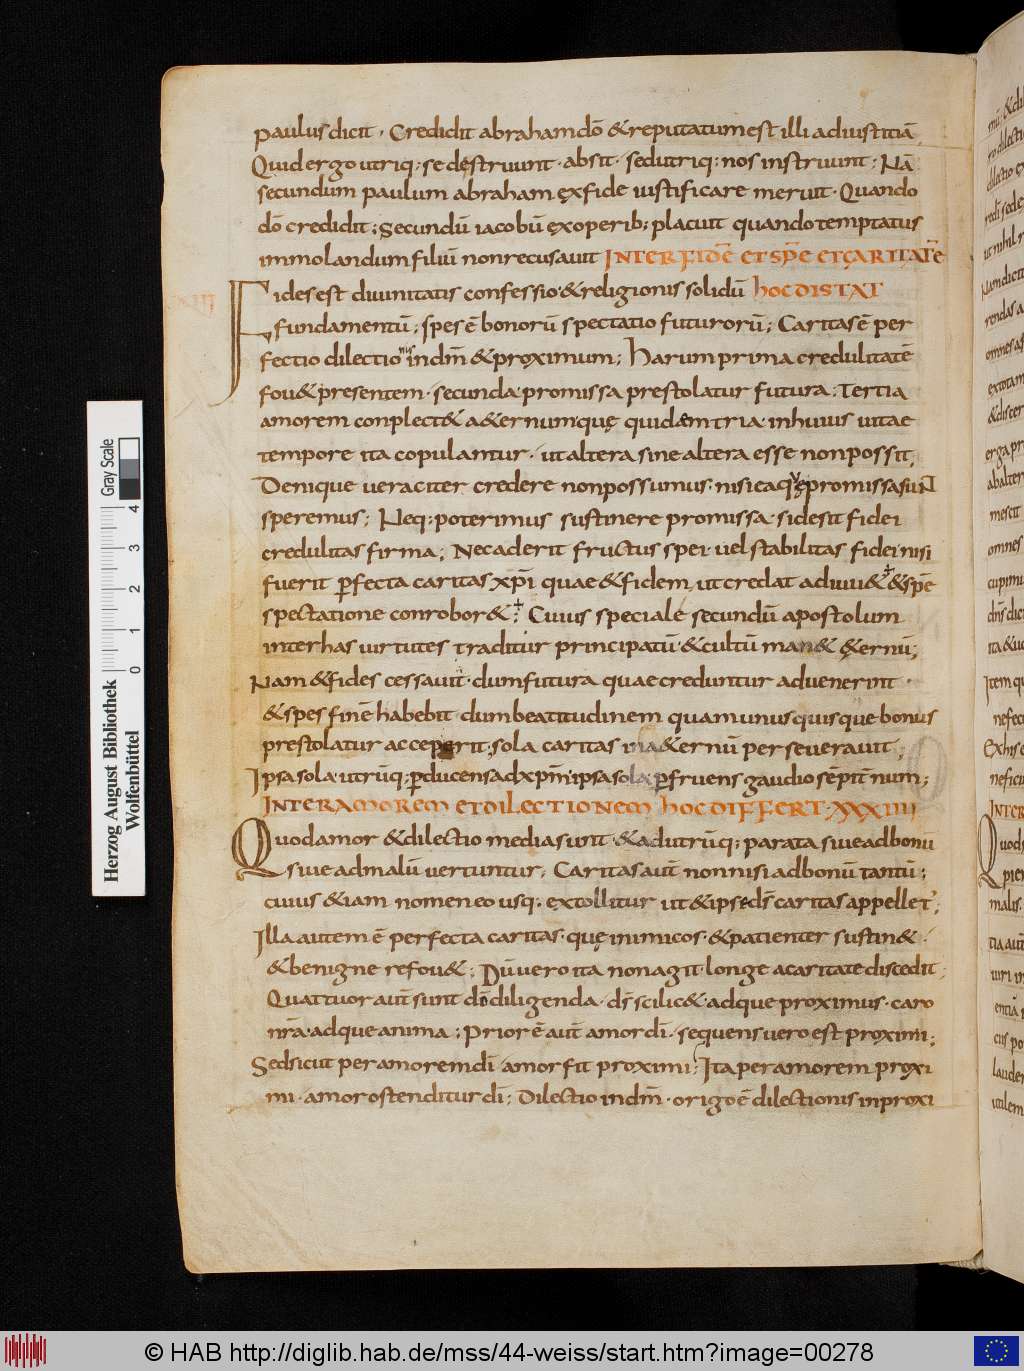 paulus dicit · Credidit abraham dō & reputatum est illi ad iustitiā
Quid ergo utriq; se destruunt · absit · sed utriq; nos instruunt · Nā
secundum paulum abraham ęx fide iustificare meruit · Quando
dō credidit ; Secundū iacobū ęx operib; placuit quando temptatus
immolandum filiū non recusauit INTER FIDĒ ET SPĒ ET CARITATĒ
Fides est diuinitatis confessio · & religionis solidū hOC DISTAT
fundamentū ; spes ē bonorū spectatio futurorū ; Caritas ē per
fectio dilectionis in dm̄ & proximum ; harum prima credulitatē
fou& presentem · secunda promissa prestolatur futura · Tertia
amorem conplect& a&ernum quę quidem tria in huius uitae
tempore ita copulantur · ut altera sine altera esse non possit ;
Denique ueraciter credere non possumus · nisi ea quę promissa sunt
speremus ; Neq; poterimus sustinere promissa · si desit fidei
credulitas firma ; Nec aderit fructus spei · uel stabilitas fidei nisi
fuerit perfecta caritas xp̄i quae & fidem ut credat adiuu& & spē
spectatione conrobor& ; Cuius speciale secundū apostolum
inter has uirtutes traditur principatū & cultū man& ęternū ;
Nam & fides cessauit · dum futura quae creduntur aduenerint ·
& spes finē habebit dum beatitudinem quam unusquisque bonus
prestolatur acceperit · sola caritas in a&ernū perseuerauit ;
Ipsa sola utrūq; p̱ducens ad xp̄m · ipsa sola p̱fruens gaudio sēpitnum ;
INTER AMOREM ET DILECTIONEM hOC DIFFERT · XXXIIII
Quod amor & dilectio media sunt · & ad utrūq; parata siue ad bonū
siue ad malū uertuntur ; Caritas aut̄ non nisi ad bonū tantū ;
cuius & iam nomen eo usq; extollitur ut & ipse ds̄ caritas appellet' ;
Illa autem ē perfecta caritas · quę inimicos · & patienter sustin& ·
& benigne refou& ; Dū uero ita non agit · longe a caritate discedit ;
Quattuor aut̄ sunt dō diligenda · ds̄ scilic& · adque proximus · caro
nr̄a · adque anima ; Prior ē aut̄ amor dī · sequens uero est proximi ;
Sed sicut per amorem dī amor fit proximi ; Ita per amorem proxi
mi · amor ostenditur dī ; Dilectio in dm̄ · origo ē dilectionis in proxi
Herzog August Bibliothek
Wolfenbüttel
Gray Scale
0 1 2 3 4
© HAB http://diglib.hab.de/mss/44-weiss/start.htm?image=00278